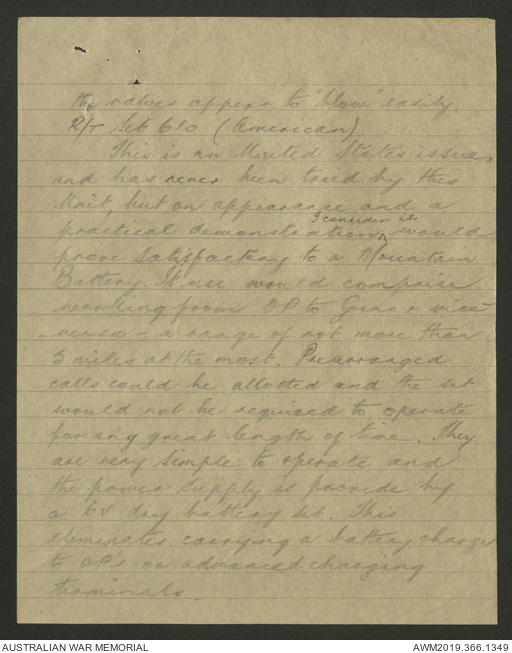 the valves appear to "blow" easily.
R/T Set 610 (American)
This is an United States issue,
and has never been tried by this
Unit, but on appearance and a
practical demonstration, I consider it would
prove satisfactory to a Mountain
Battery. It use would comprise
working from OP to Guns & vice
versa - a range of not more than
5 miles at the most. Prearranged
calls could be allotted and the set
would not be required to operate
for any great length of time. They
are very simple to operate and
the power supply is provide by
a 6v dry battery set. This
eliminates carrying a battery charger
to OP's or advanced charging
terminals.
AUSTRALIAN WAR MEMORIAL
AWM2019.366.1349